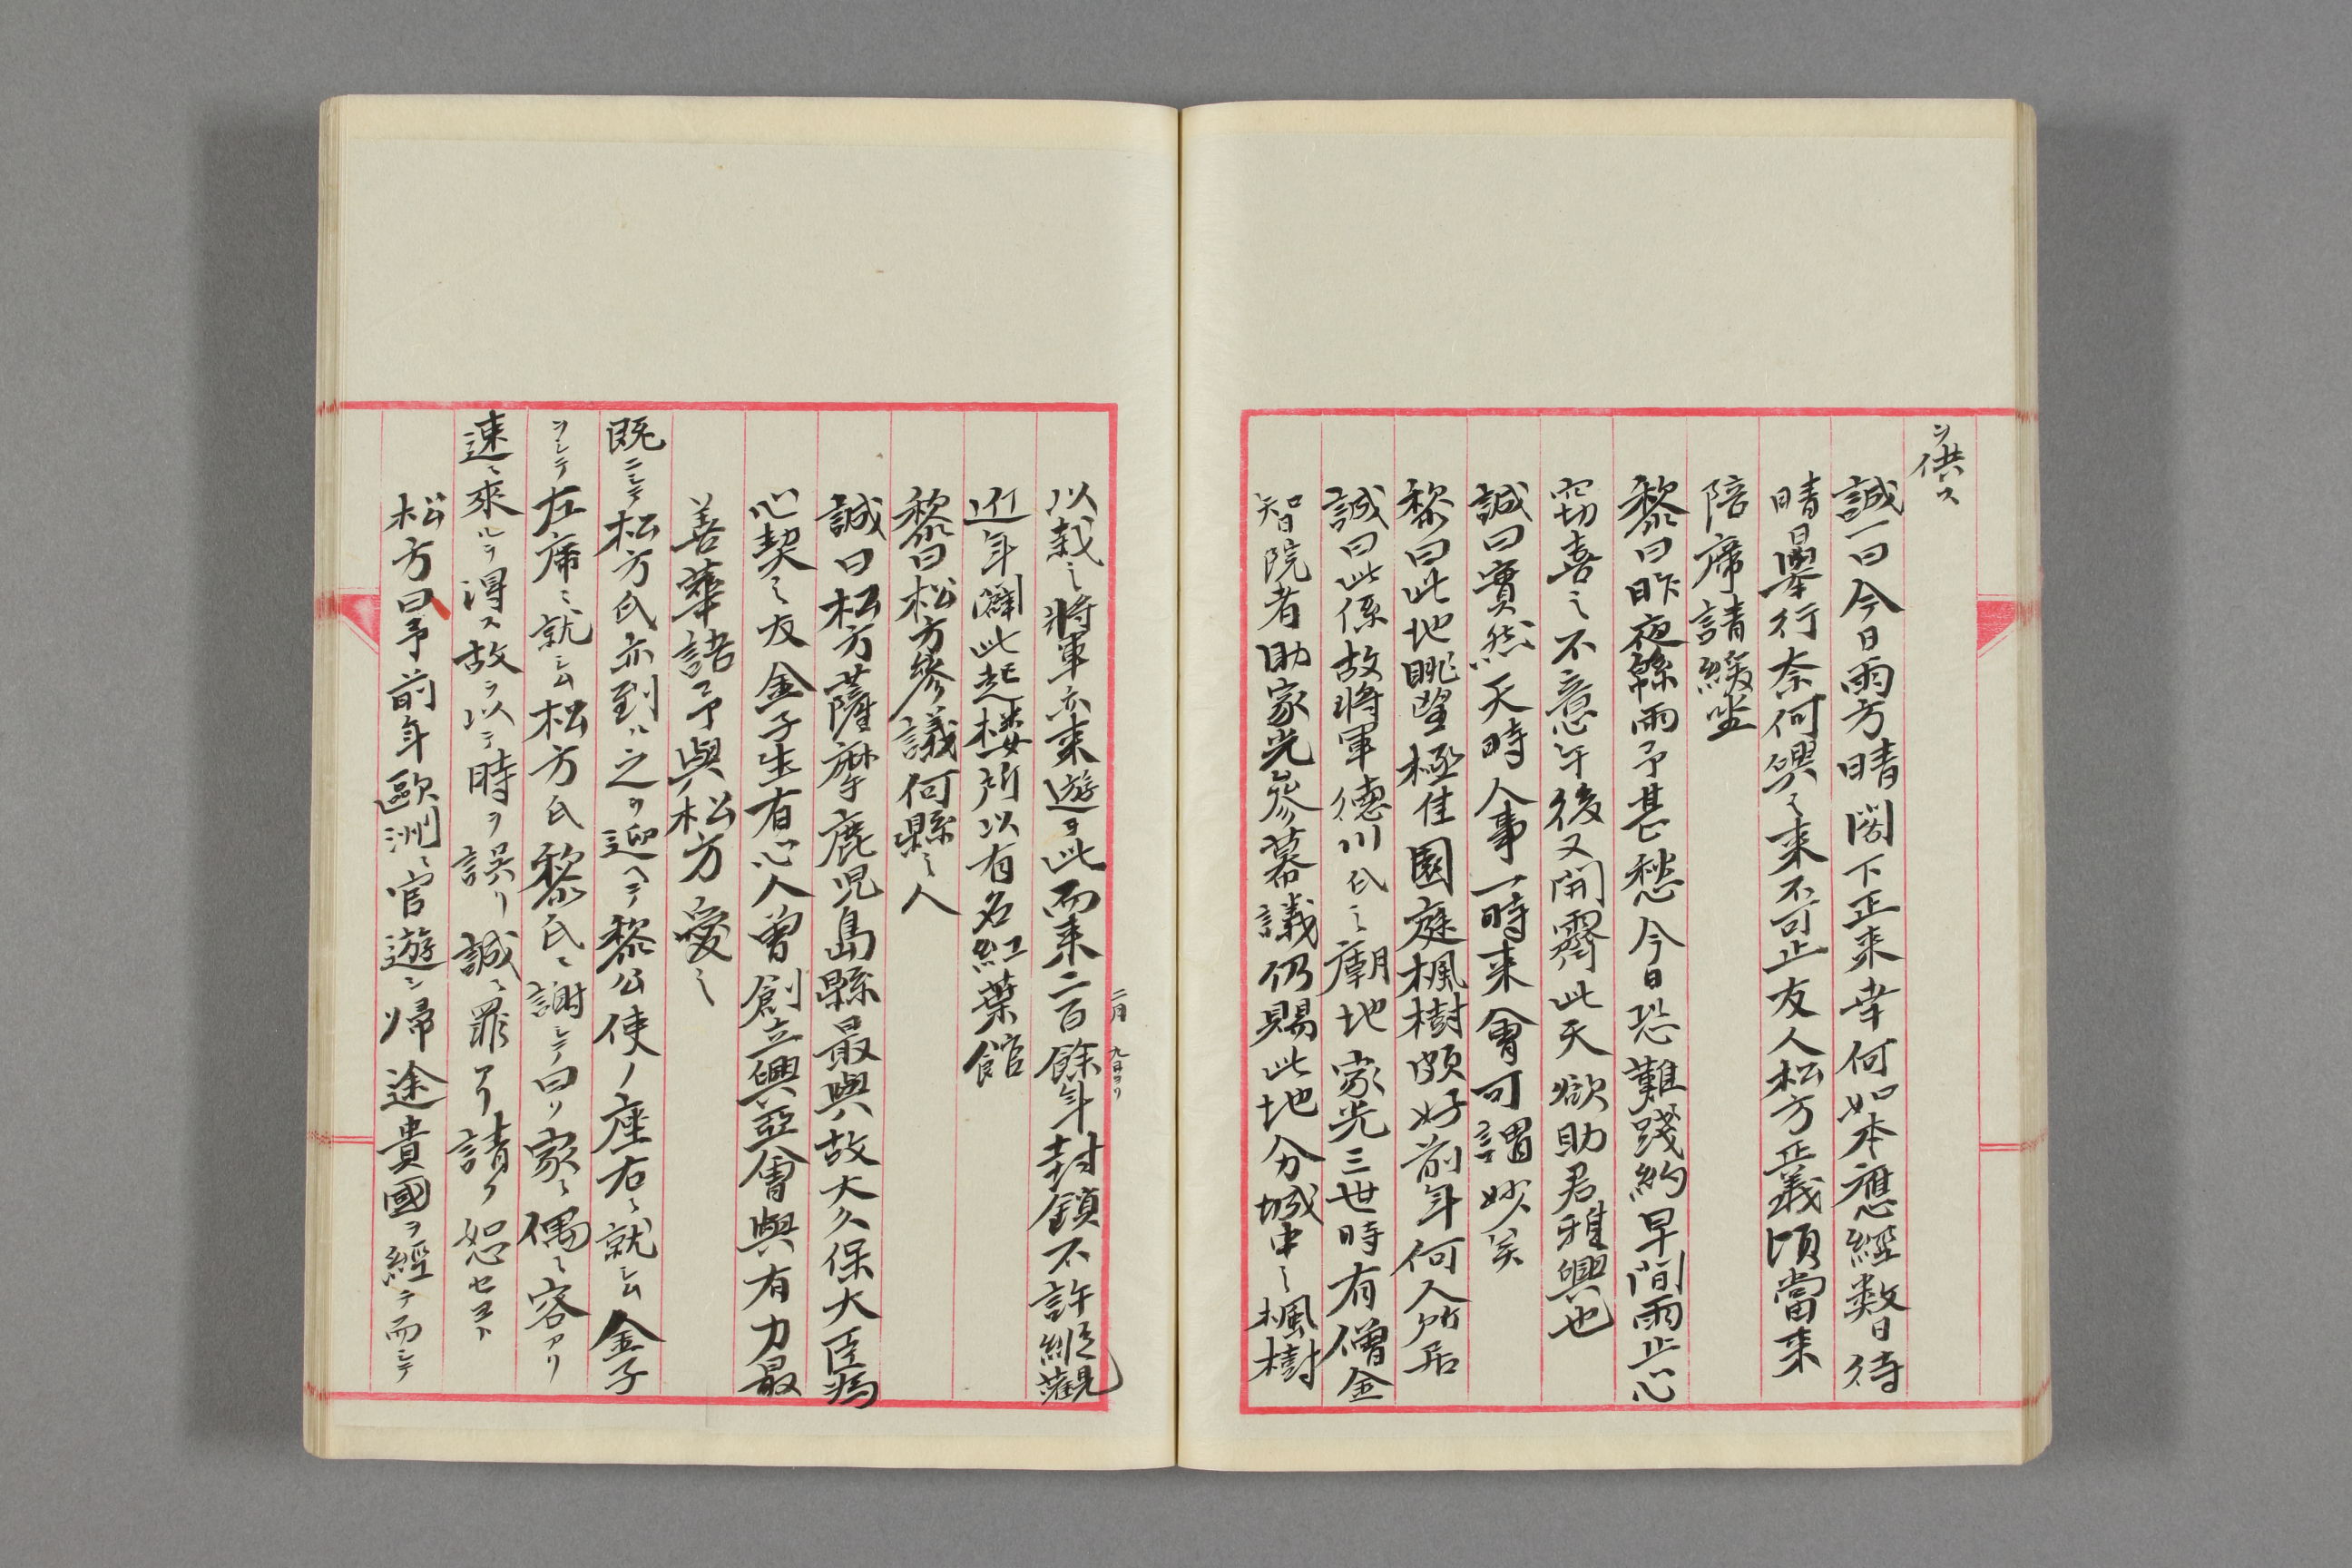 ヲ供ス
誠一曰今日雨方晴閣下正来幸何如本應經数日待
晴日挙行奈何興之来不可止友人松方正義頃當来
陪席請緩坐
黎曰昨夜緜雨予甚愁今日恐難踐約早間雨止心
窃喜之不意午後又開霽此天欲助君雅興也
誠曰實然天時人事一時来會可謂妙矣
黎曰此地眺望極佳園庭楓樹頗好前年何人所居
誠曰此係故将軍徳川氏之廟地家光三世時有僧金
智院者助家光參幕議仍賜此地分城中之楓樹
以栽之将軍亦来遊ヲ此而来二百餘年封鎖不許縦觀
二月九日ヨリ
近年闢此起楼所以有名紅葉館
黎曰松方參議何縣之人
誠曰松方薩摩鹿児島縣最與故大久保大臣為
心契之友金子生有心人曽創立興亞會與有力最
善華語予與松方愛之
既ニシテ松方氏亦到ル之ヲ迎ヘテ黎公使ノ座右ニ就シム金子
ヲシテ左席ニ就シム松方氏黎氏ニ謝シテ曰ク家ニ偶ニ客アリ
速ニ來ルヲ得ス故ヲ以テ時ヲ誤リ誠ニ罪アリ請ク恕セヨト
松方曰予前年歐洲ニ官遊シ帰途貴國ヲ經テ而シテ